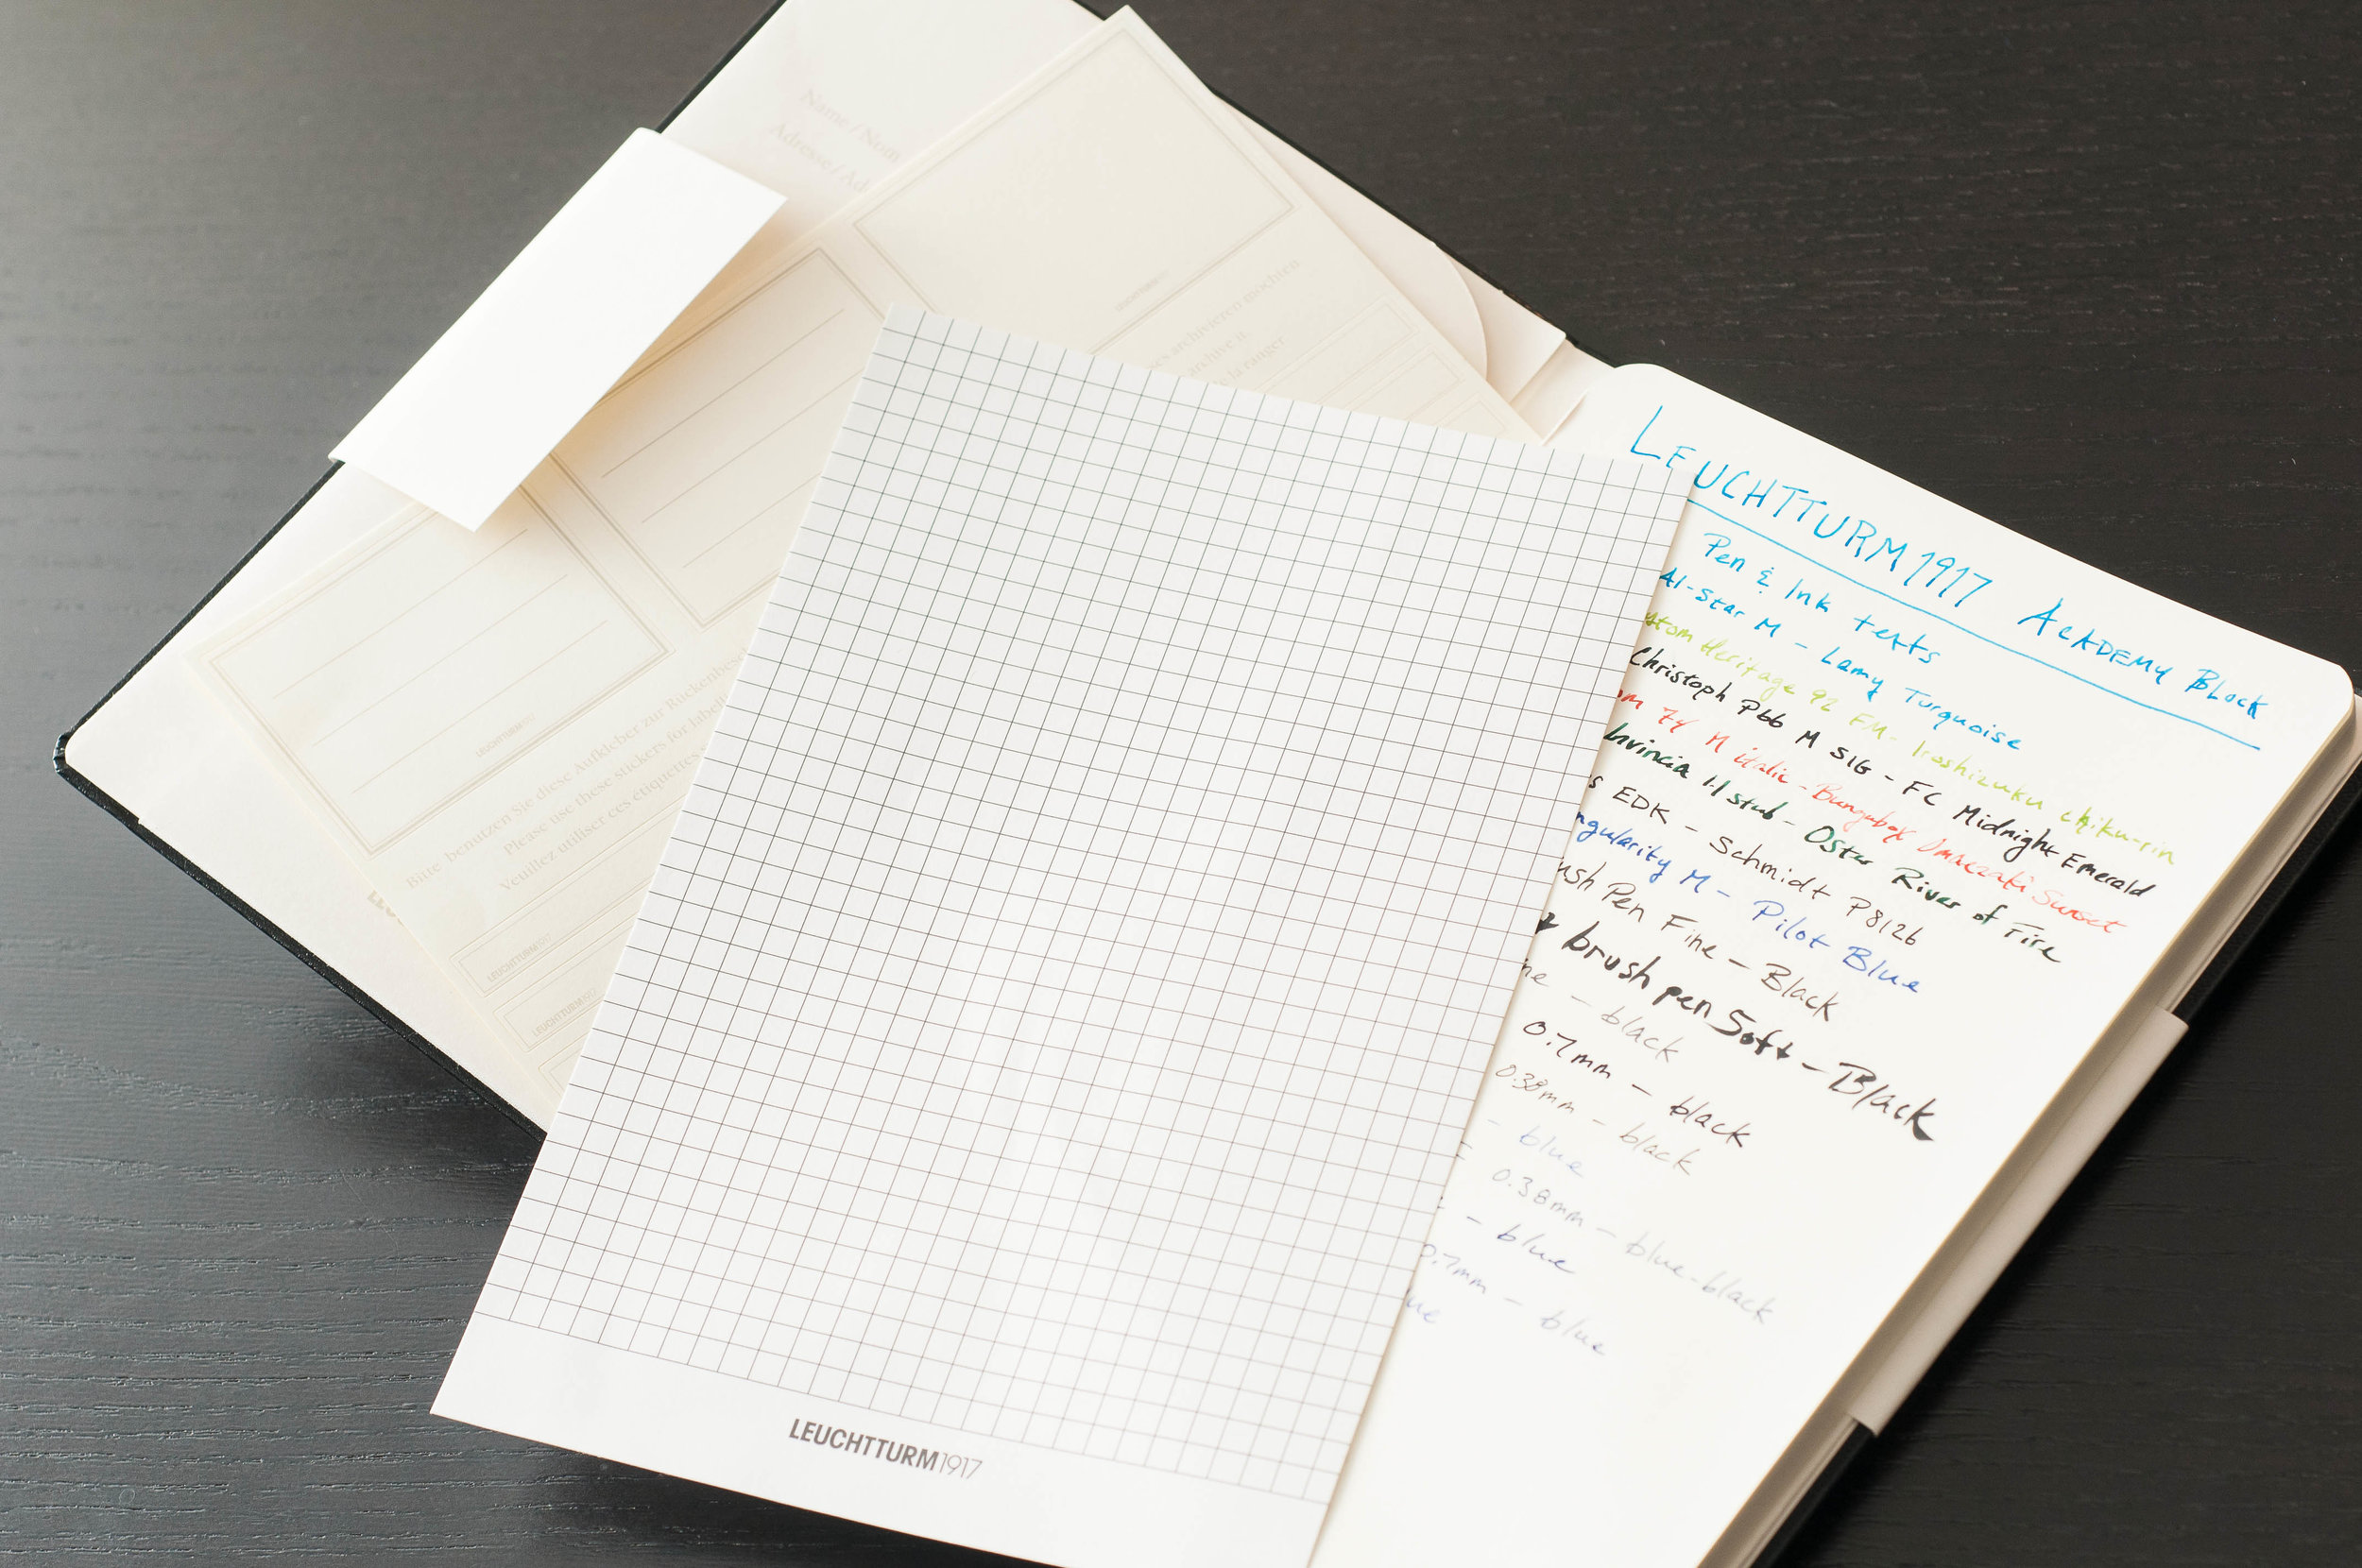 Name / Nom
Adresse / Ad
LEUCHTTURM1917
archivieren möchten
archive it.
la ranger
LEUCHTTURM1917
Bitte benutzen Sie diese Aufkleber zur Rückenbesc
Please use these stickers for labelli
Veuillez utiliser ces etiquettes
LEUCHTTURM1917
LEUCHTTURM1917
LEUCHTTURM1917
LEUCHTTURM1917 ACADEMY BLOCK
Pen & Ink tests
Al-Star M - Lamy Turquoise
stom Heritage 92 FM - Iroshizuku chiku-rin
Christoph P66 M SIG - FC Midnight Emerald
om 74 M italic - Bungubox Omaezaki Sunset
Invincia 1.1 stub - Oster River of Fire
s EDK - Schmidt P8126
ngularity M - Pilot Blue
ush Pen Fine - Black
brush pen Soft - Black
ne - black
0.7mm - black
0.38mm - black
- blue
0.38mm - blue-black
- blue
0.7mm - blue
ue